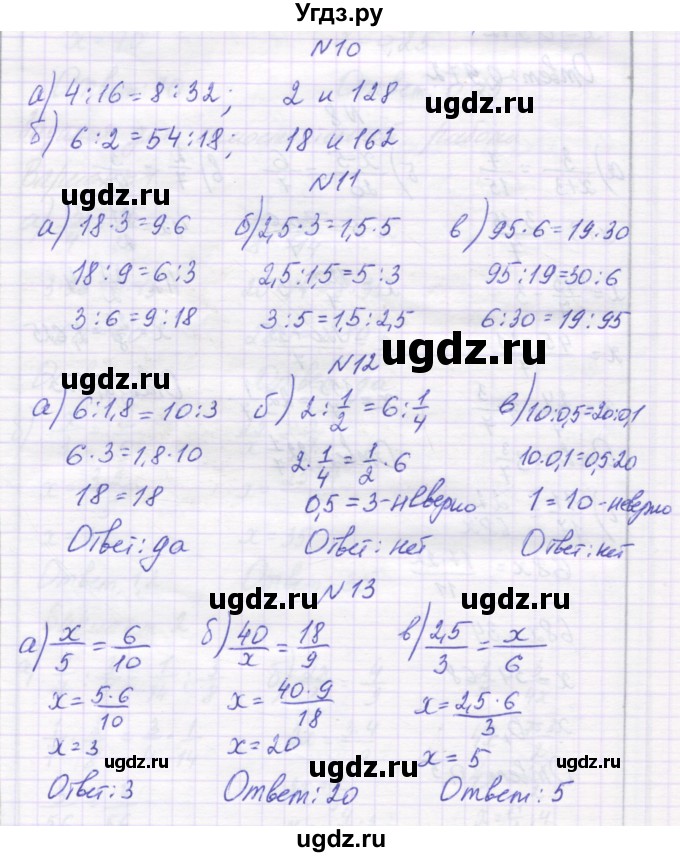 Угдз.ру
N10
а) 4:16=8:32; 2 и 128
б) 6:2=54:18; 18 и 162
N11
а) 18·3=9·6 б) 2,5·3=1,5·5 в) 95·6=19·30
18:9=6:3 2,5:1,5=5:3 95:19=30:6
3:6=9:18 3:5=1,5:2,5 6:30=19:95
N12
а) 6:1,8=10:3 б) 2:1/2=6:1/4 в) 10:0,5=20:0,1
6·3=1,8·10 2·1/4=1/2·6 10·0,1=0,5·20
18=18 0,5=3-неверно 1=10-неверно
Ответ: да Ответ: нет Ответ: нет
N13
а) x/5=6/10 б) 40/x=18/9 в) 2,5/3=x/6
x=5·6/10 x=40·9/18 x=2,5·6/3
x=3 x=20 x=5
Ответ: 3 Ответ: 20 Ответ: 5
ugdz.ru
ugdz.ru
ugdz.ru
ugdz.ru
ugdz.ru
ugdz.ru
ugdz.ru
ugdz.ru
ugdz.ru
ugdz.ru
ugdz.ru
ugdz.ru